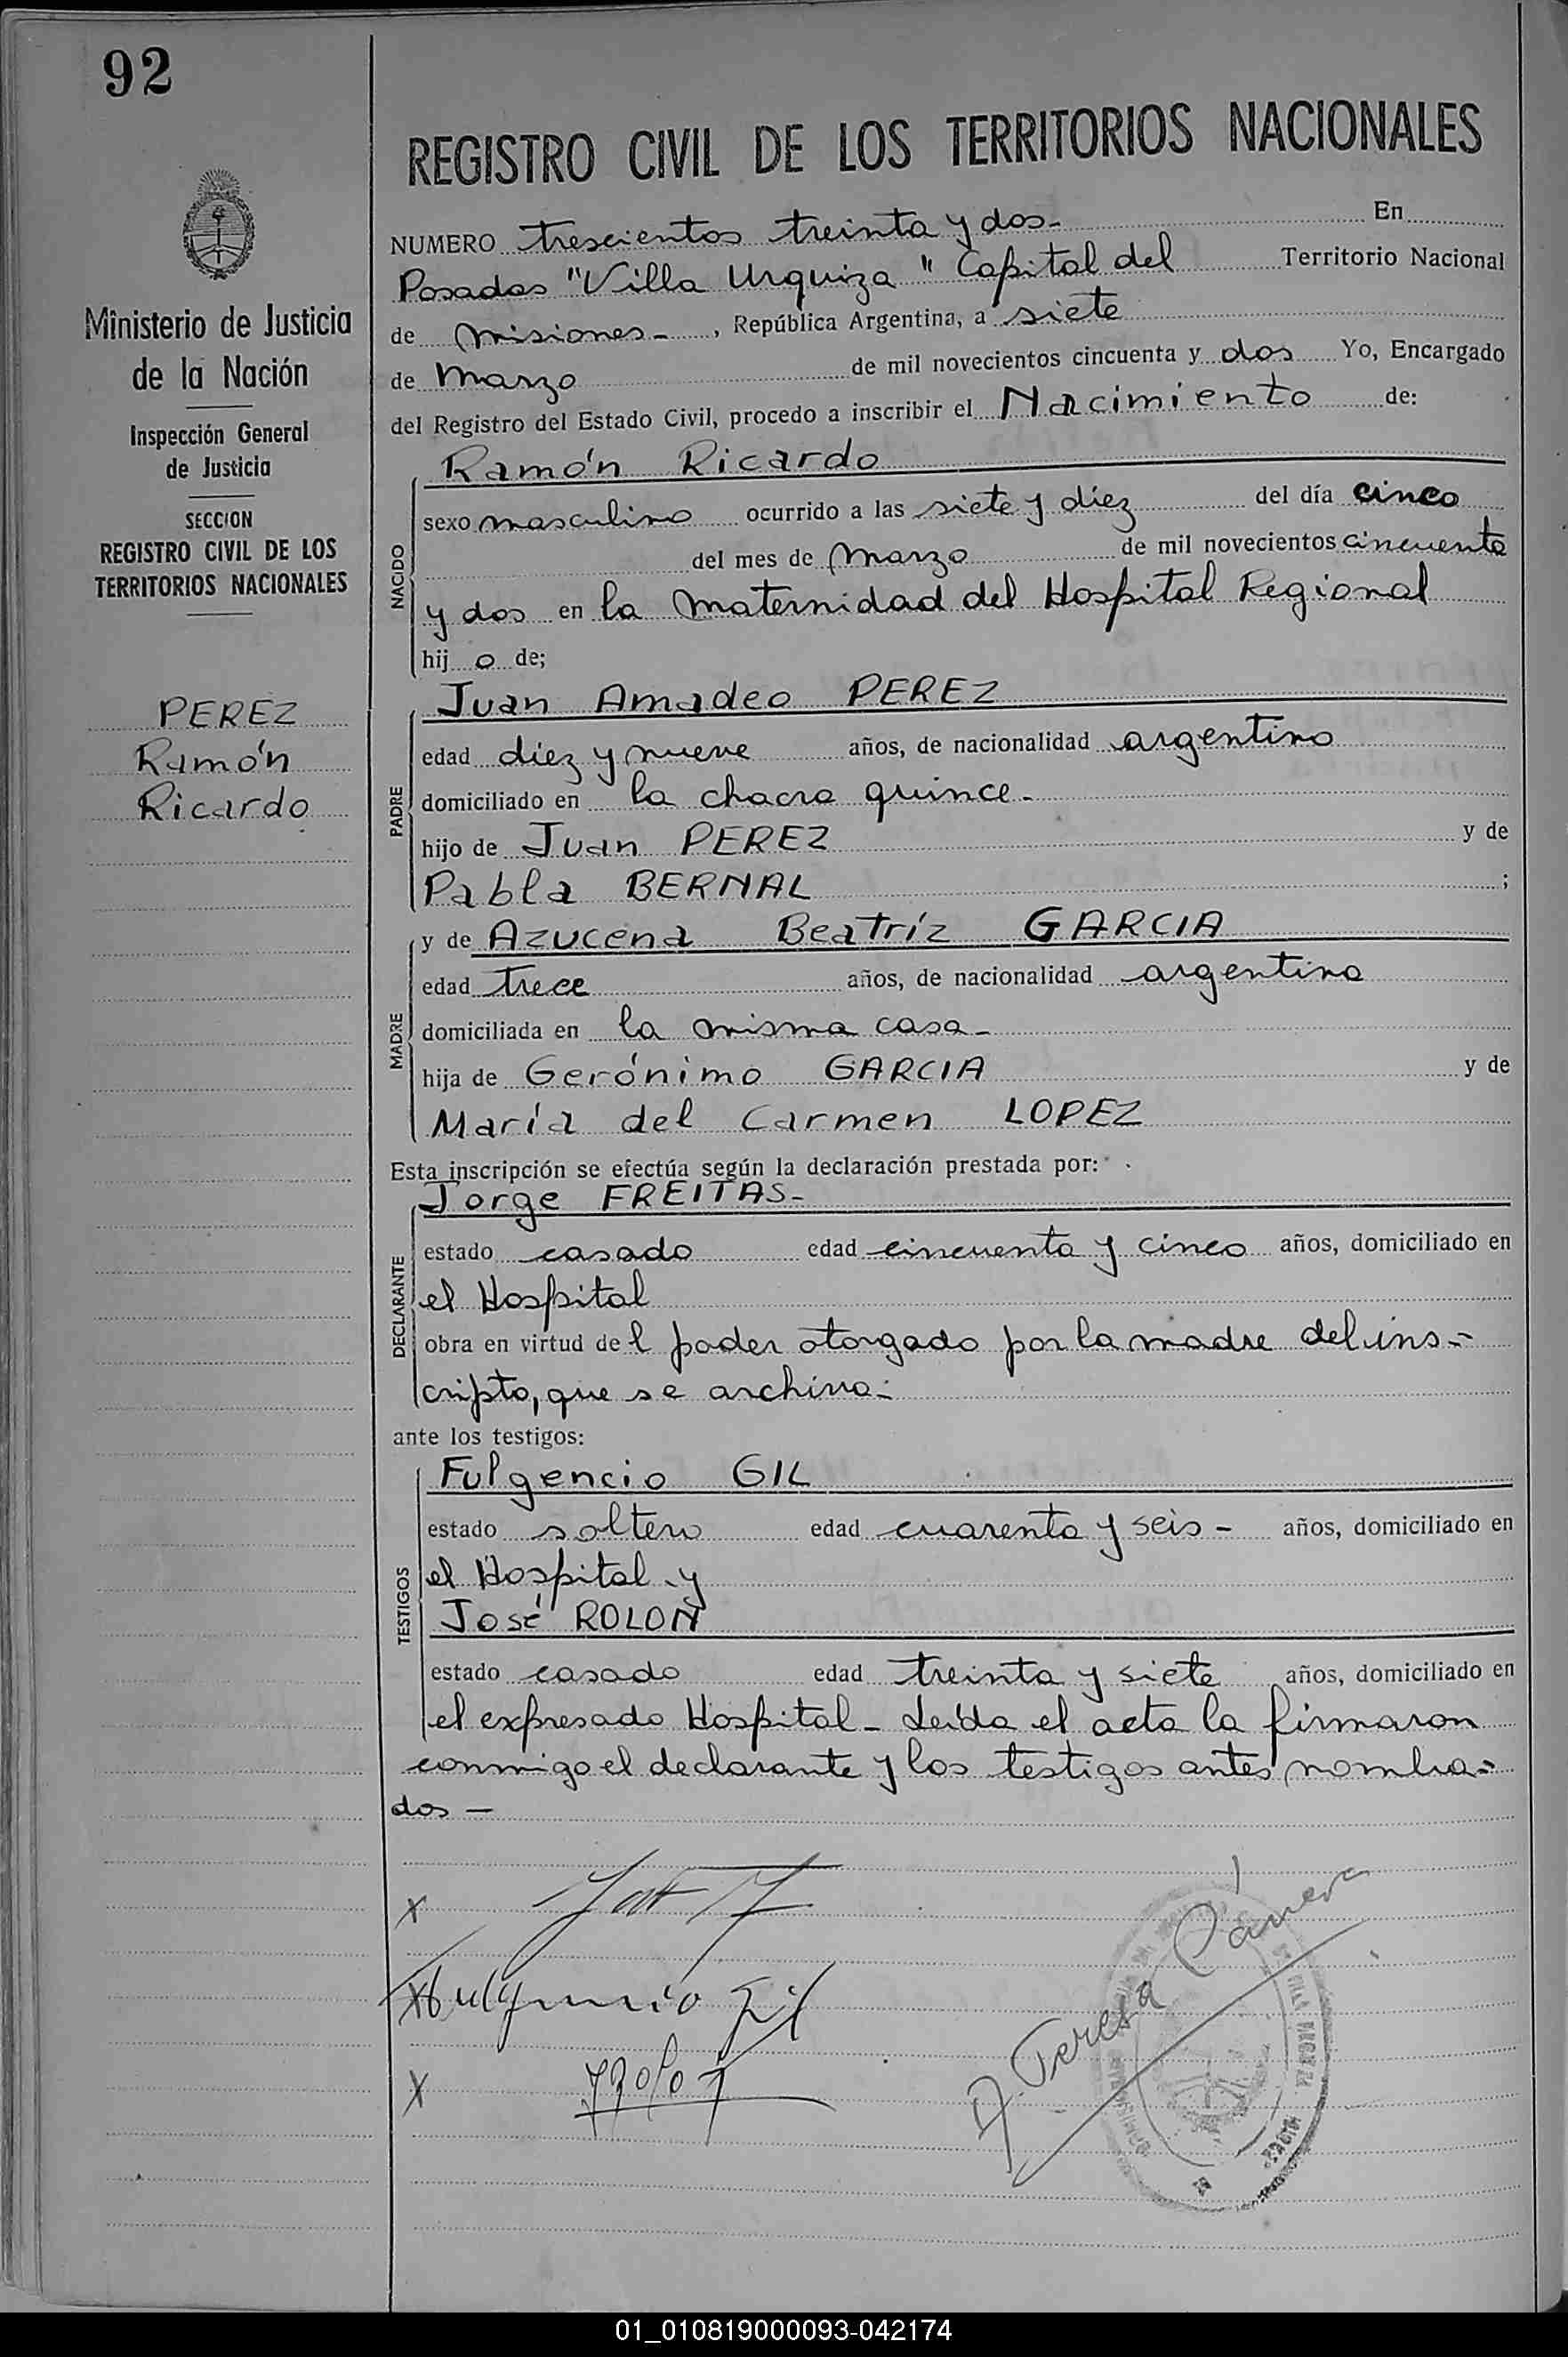 92
REGISTRO CIVIL DE LOS TERRITORIOS NACIONALES
Ministerio de Justicia
de la Nación
Inspección General
de Justicia
SECCION
REGISTRO CIVIL DE LOS
TERRITORIOS NACIONALES
PEREZ
Ramón
Ricardo
NUMERO trescientos treinta y dos- En
Posadas "Villa Urquiza" Capital del Territorio Nacional
de Misiones-, República Argentina, a siete
de Marzo de mil novecientos cincuenta y dos Yo, Encargado
del Registro del Estado Civil, procedo a inscribir el Nacimiento de:
NACIDO
Ramón Ricardo
sexo masculino ocurrido a las siete y diez del día cinco
del mes de Marzo de mil novecientos cincuenta
y dos en la Maternidad del Hospital Regional
hij o de;
PADRE
Juan Amadeo PEREZ
edad diez y nueve años, de nacionalidad argentino
domiciliado en la chacra quince-
hijo de Juan PEREZ y de
Pabla BERNAL ;
MADRE
y de Azucena Beatríz GARCIA
edad trece años, de nacionalidad argentina
domiciliada en la misma casa-
hija de Gerónimo GARCIA y de
María del Carmen LOPEZ
Esta inscripción se efectúa según la declaración prestada por:
DECLARANTE
Jorge FREITAS-
estado casado edad cincuenta y cinco años, domiciliado en
el Hospital
obra en virtud del poder otorgado por la madre del ins-
cripto, que se archiva-
ante los testigos:
TESTIGOS
Fulgencio GIL
estado soltero edad cuarenta y seis- años, domiciliado en
el Hospital y
José ROLON
estado casado edad treinta y siete años, domiciliado en
el expresado Hospital- Leída el acta la firmaron
conmigo el declarante y los testigos antes nombra-
dos-
x
x Fulgencio Gil
x
Teresa
01_010819000093-042174